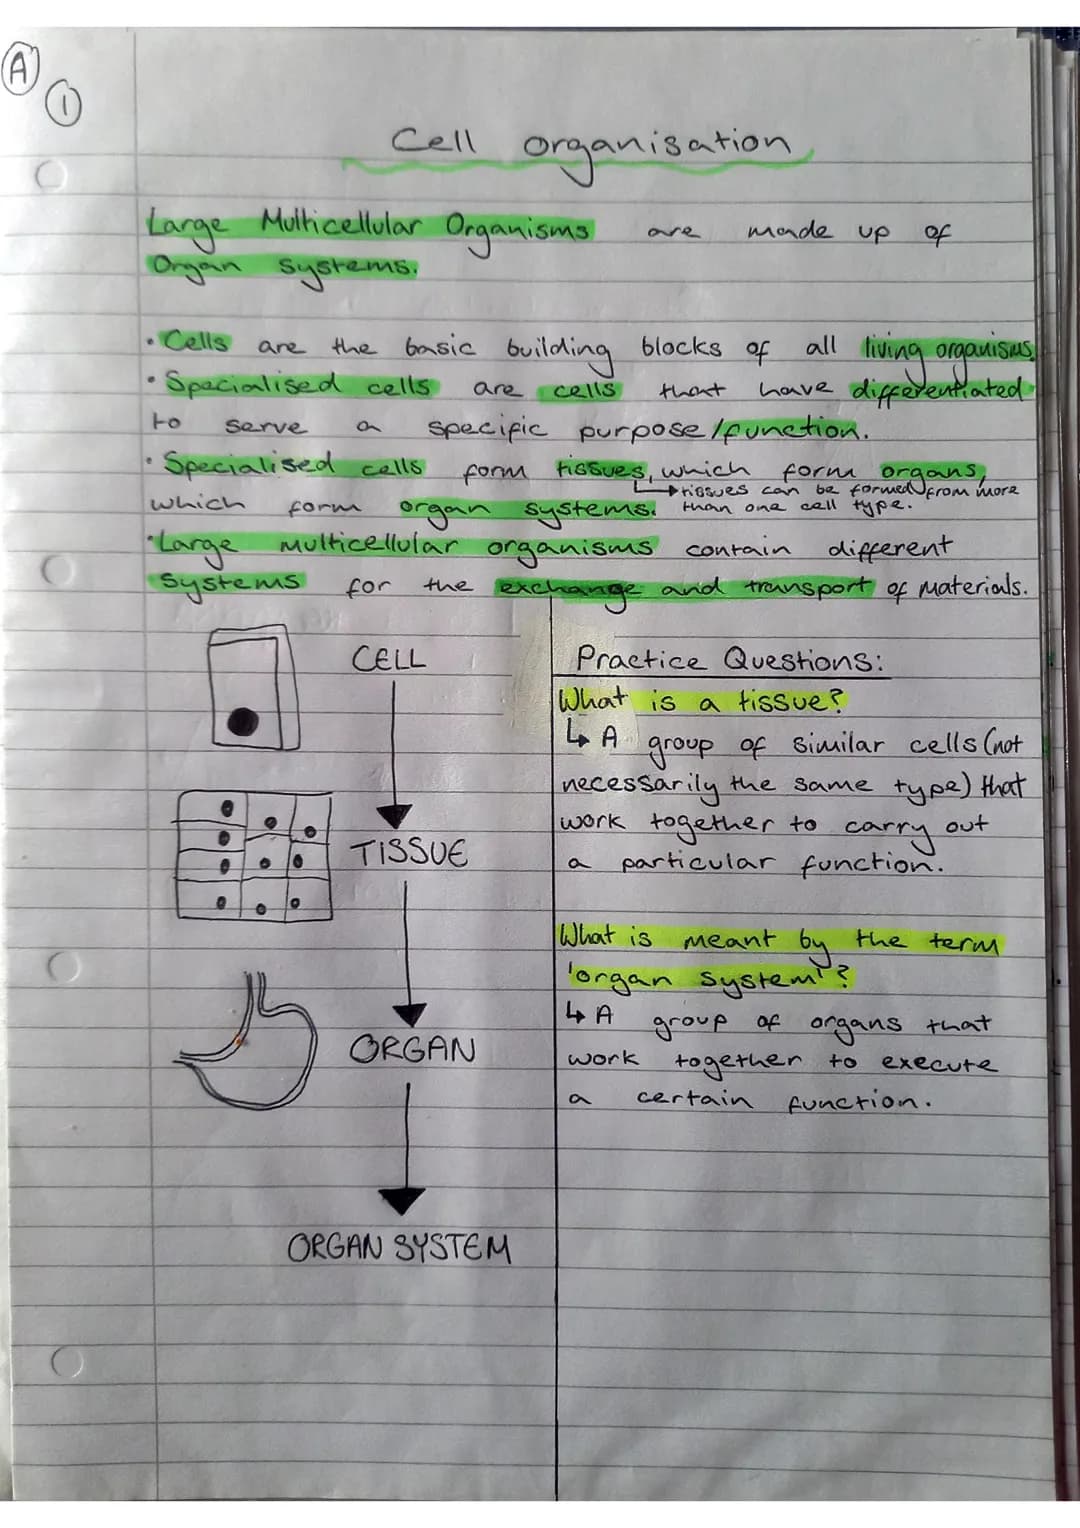 A
1
Cell organisation
Large Multicellular Organisms are made up of
Organ systems.
• Cells are the basic building blocks of all living organisms.
• Specialised cells are cells that have differentiated
to serve a specific purpose/function.
• Specialised cells form tissues, which form organs,
↳ tissues can be formed from more
which form organ systems. than one cell type.
• Large multicellular organisms contain different
systems for the exchange and transport of materials.
CELL
TISSUE
ORGAN
ORGAN SYSTEM
Practice Questions:
What is a tissue?
↳ A group of similar cells (not
necessarily the same type) that
work together to carry out
a particular function.
What is meant by the term
'organ system'?
↳ A group of organs that
work together to execute
a certain function.